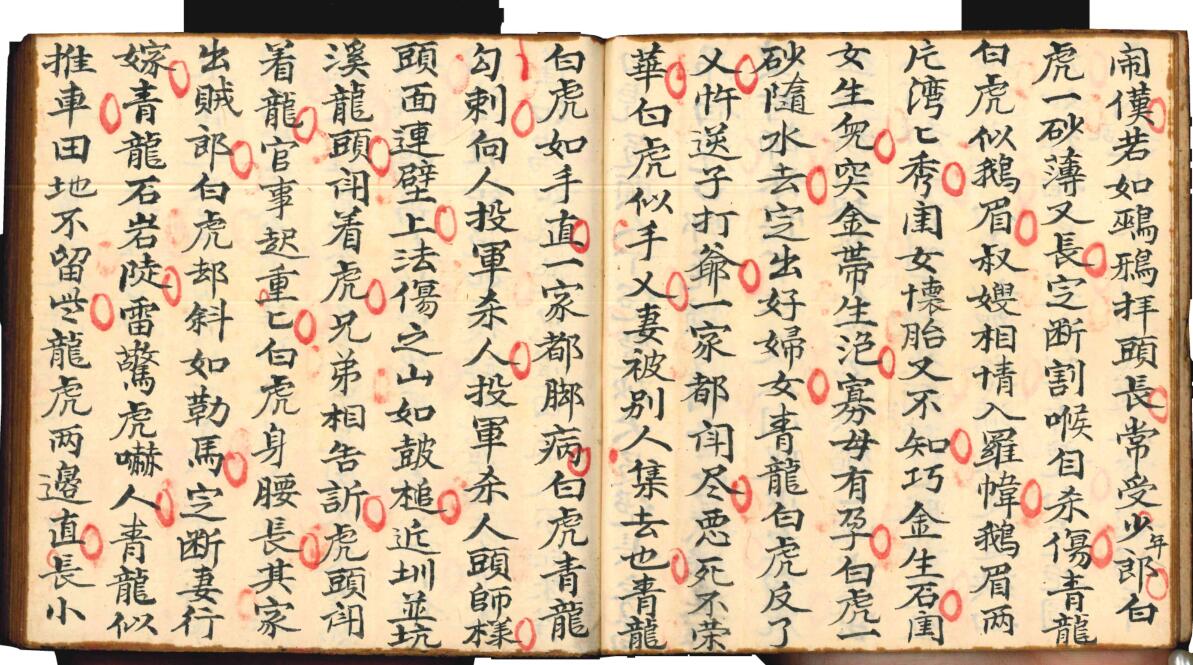 闹儀若如鵶鴉拝頭長常受少年郎白
虎一砂薄又長定断割喉自杀傷青龍
白虎似鵝眉叔嫂相情入羅幃鵝眉两
片湾匕秀闺女懐胎又不知巧金生石围
女生兜突金帶生浥寡母有孕白虎一
砂隨水去定出好婦女青龍白虎反了
乂忤逆子打爺一家都闭尽恶死不荣
華白虎似手乂妻被别人集去也青龍
白虎如手直一家都脚病白虎青龍
勾刺向人投軍杀人投軍杀人頭師樣
頭面連壁上法傷之山如皷槌近圳並坑
溪龍頭闭着虎兄弟相告訴虎頭闭
着龍官事起重匕白虎身腰長其家
出賊郎白虎却斜如勒馬定断妻行
嫁青龍石岩陡雷驚虎嚇人青龍似
推車田地不留些龍虎两邉直長小